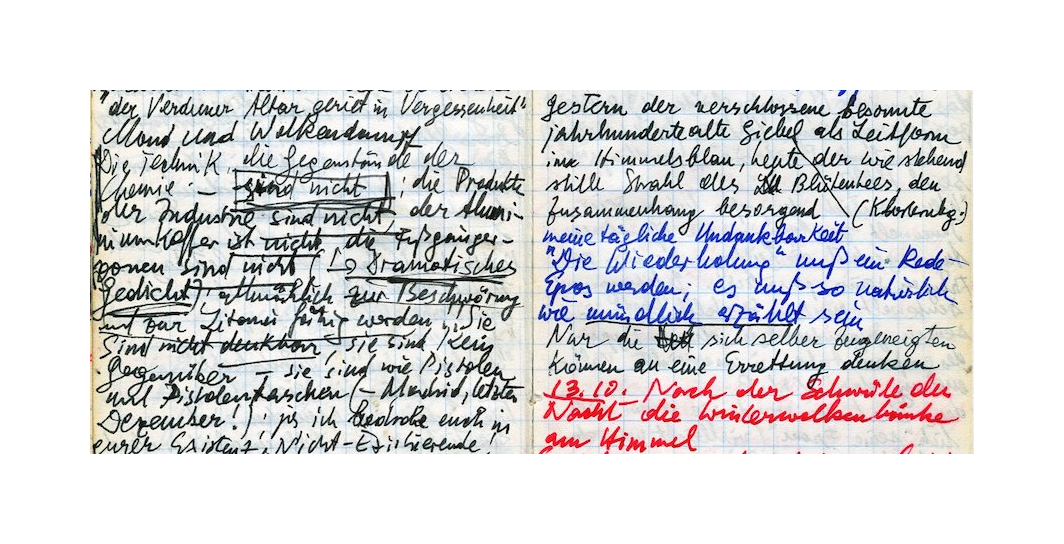 "der Verduner Altar geriet in Vergessenheit"
Mond und Wolkendampf
Die Technik, die Gegenstände der
Chemie – sind nicht ; die Produkte
der Industrie sind nicht, der Alumi-
niumkoffer ist nicht, die Fußgänger-
zonen sind nicht (! → Dramatisches
Gedicht), allmählich zur Beschwörung
und zur Litanei fähig werden, "Sie
sind nicht denkbar, sie sind kein
Gegenüber – sie sind wie Pistolen
und Pistolentaschen (– Madrid, letzten
Dezember!); ich bedrohe euch in
eurer Existenz, Nicht-Existierende,
gestern der verschlossene besonnte
jahrhundertealte Giebel als Leitform
im Himmelsblau, heute der wie stehend
stille Strahl des Blütentees, den
Zusammenhang besorgend (Klosterneubg.)
meine tägliche Undankbarkeit
"Die Wiederholung" muß ein Rede-
Epos werden; es muß so natürlich
wie mündlich erzählt sein
Nur die sich selber zugeneigten
können an eine Errettung denken
13.10. Nach der Schwüle der
Nacht die Winterwolkenbänke
am Himmel